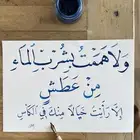 وَلَا هَمَمْتُ بِشُرْبِ الْمَاءِ
مِنْ عَطَشٍ
إِلَّا رَأَيْتُ خَيَالًا مِنْكَ فِي الْكَأْسِ